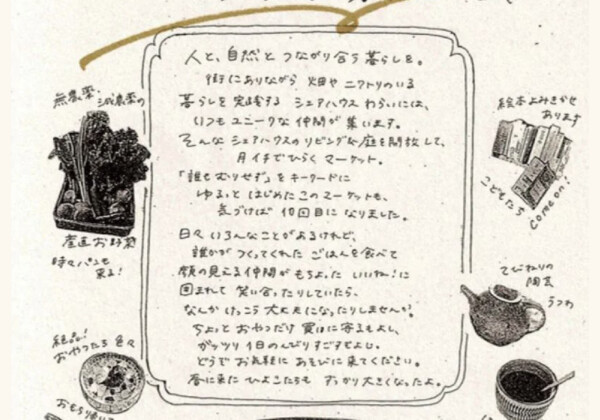 人と、自然と つながり合う 暮らしを。
街にありながら 畑や ニワトリのいる
暮らしを 実践する シェアハウス わらいには、
いつも ユニークな 仲間が 集います。
そんな シェアハウスの リビングや 庭を 開放して、
月イチでひらく マーケット。
「誰もむりせず」を キーワードに
ゆるっと はじめた このマーケットも、
気づけば 10回目に なりました。
日々 いろんなことが あるけれど、
誰かが つくってくれた ごはんを 食べて
顔の見える 仲間が もちよった いいね!に
囲まれて 笑い合ったりしていたら、
なんか けっこう 大丈夫に なったりしませんか。
ちょっと おやつだけ 買いに 寄るもよし、
ガッツリ 1日のんびり すごすもよし、
どうぞ お気軽に あそびに 来てください。
春に来た ひよこたちも すっかり 大きくなったよ。
無農薬・減農薬の
産直お野菜
時々パンも
来る!
絶品!
おやつたち 色々
絵本よみきかせ
あります
こどもたち
Come on!
てびねりの
陶芸
うつわ